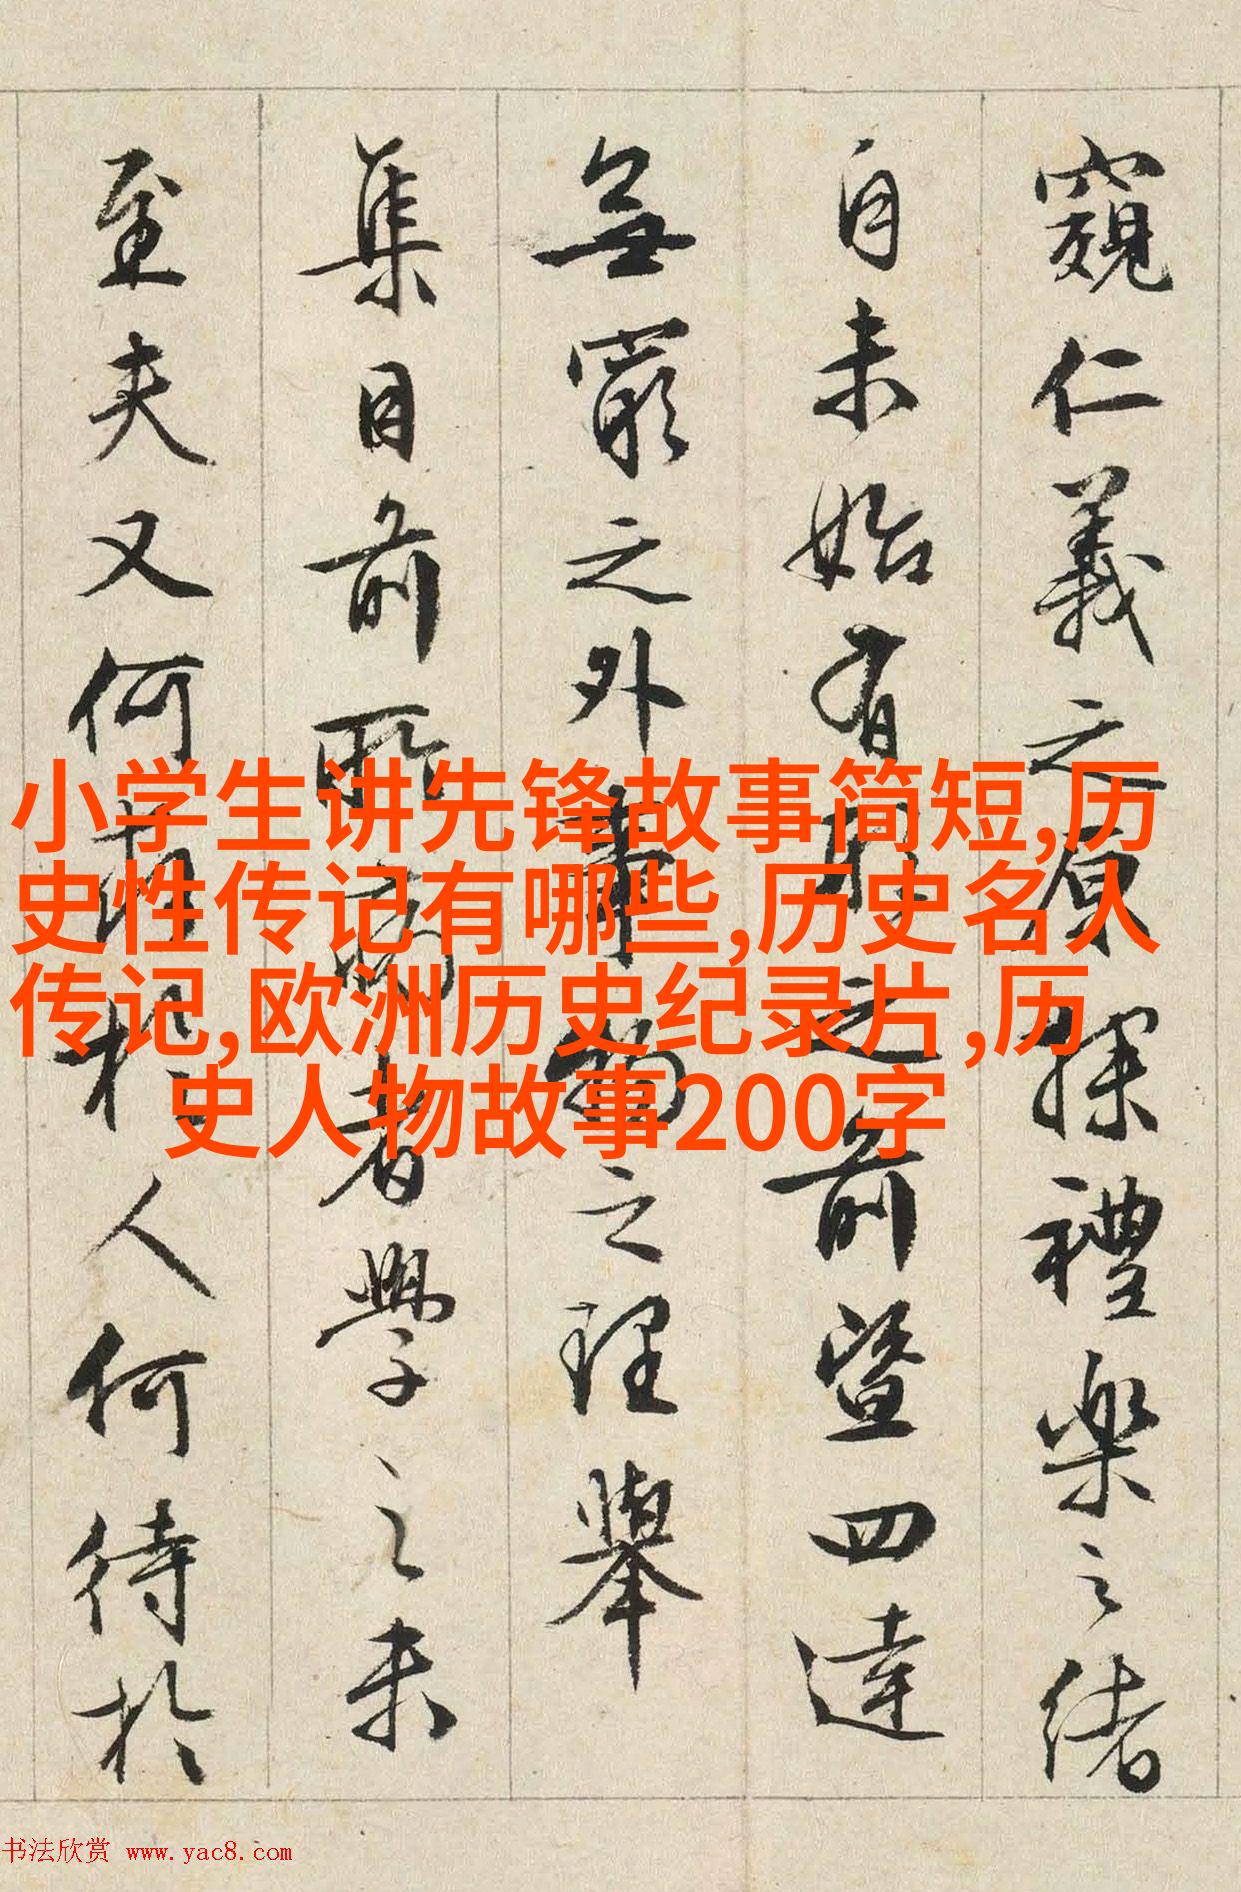 窺仁義之原探禮樂之緒
自未始有形之前暨四達
無窮之外事物之理舉
集目前所病者學之未
至夫又何於人何待於
小学生讲先锋故事简短,历
史性传记有哪些,历史名人
传记,欧洲历史纪录片,历
史人物故事200字
书法欣赏 www.yac8.com